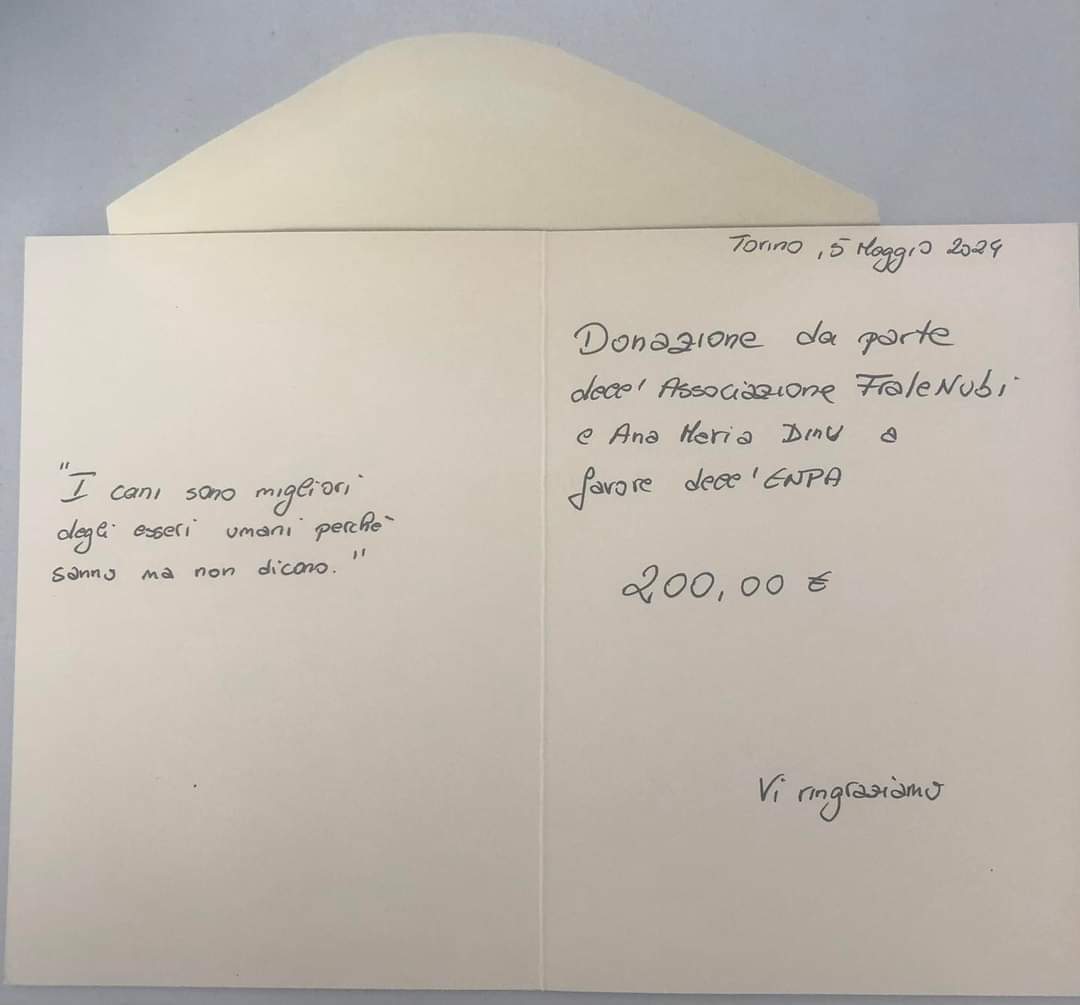 "I cani sono migliori
degli esseri umani perchè
sanno ma non dicono."
Torino, 5 Maggio 2024
Donazione da parte
dell'Associazione FraleNubi
e Ana Maria Dinu a
favore dell'ENPA
200,00 €
Vi ringraziamo